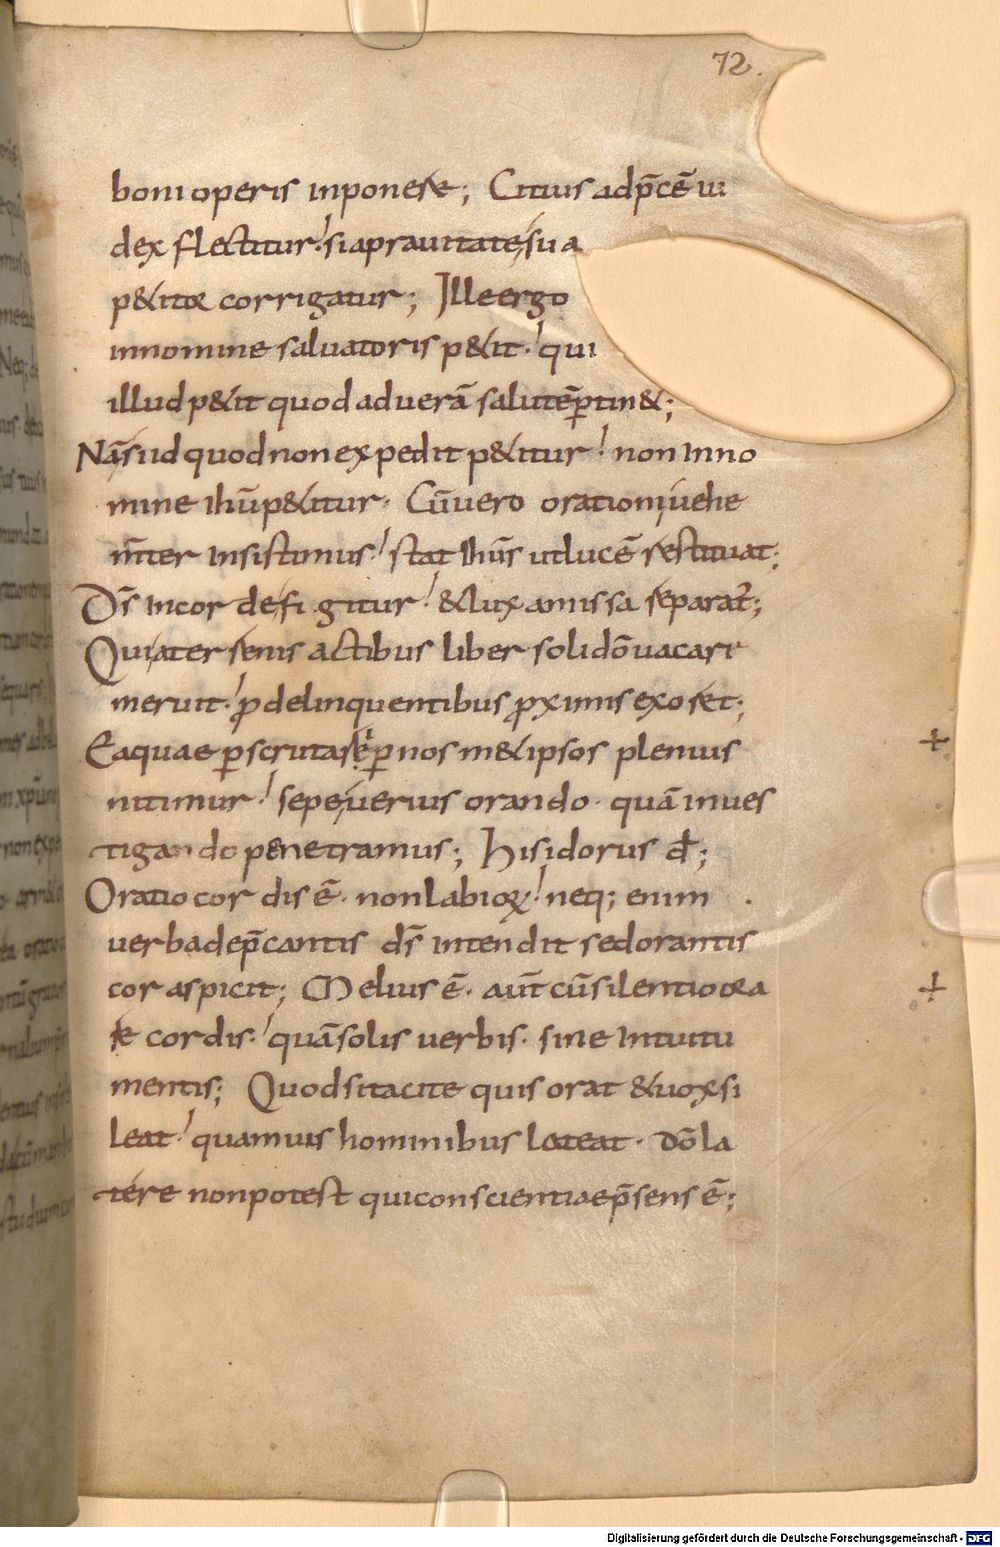 72.
boni operis inponere; Citius adp̄cē iu
dex flectitur. si aprauitate sua
p&itor corrigatur; Ille ergo
innomine saluatoris p&it. qui
illud p&it quod ad uerā salutē ꝑtin&;
Nā si id quod non expedit p&itur. non Inno
mine ihū p&itur. Cū uero orationi uehe
mt̄er Insistimus. stat ihs̄ ut lucē restituat;
Ds̄ Incor defigitur. & lux amissa separat᷒;
Qui aternis actibus liber soli dō uacare
meruit. ꝓ delinquentibus ꝓximis exoret;
Ea quae ꝑscrutari sēꝑ nos m&ipsos plenius
nitimur. sepe uerius orando. quā inues
tigando penetramus; Hisidorus d̄;
Oratio cordis ē. non labioꝝ. neq; enim
uerba dep̄cantis ds̄ intendit sed orantis
cor aspicit; Melius ē. aut̄ cū silentio ora
re cordis. quā solis uerbis. sine Intuitu
mentis; Quod si tacite quis orat & uox si
leat. quamuis hominibus lateat. dō la
tere non potest qui conscientiae p̄sens ē;
Digitalisierung gefördert durch die Deutsche Forschungsgemeinschaft - DFG